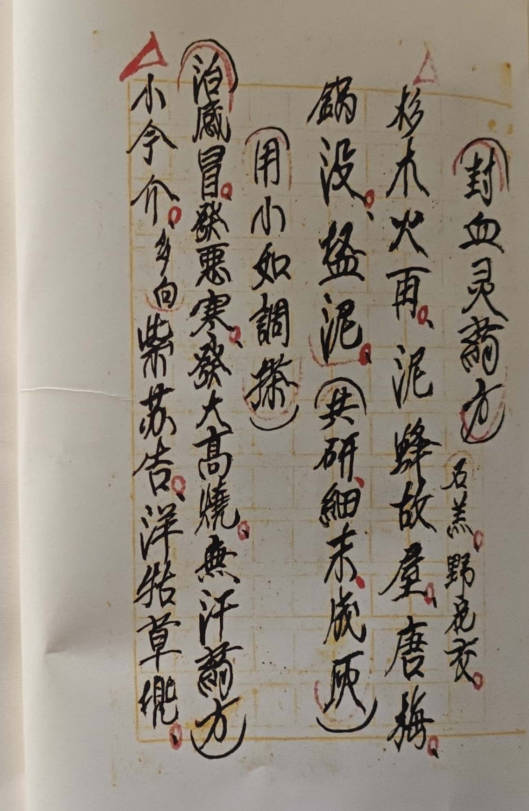 封血灵药方
石羔、野花衣、
杉木火再、泥蜂故屋、唐梅、
锅没、盐泥、共研細末成
用小如調搽
治感冒、發惡寒、發大高燒、無汗药方
小令介、乡向柴苏吉、洋牯草